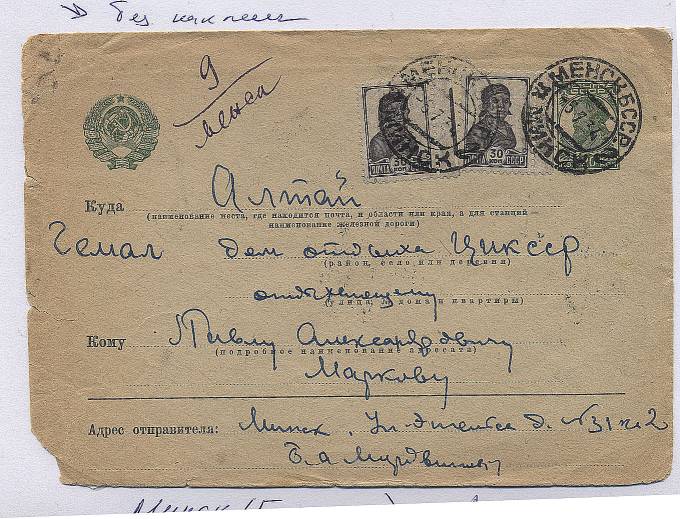 без наклеек
9
МЕНСК БССР
30 КОП
ПОЧТА СССР
30 КОП
Куда Алтай
(наименование места, где находится почта, и области или края, а для станций—
наименование железной дороги)
Чемал дом отдыха ЦИКССР
(район, село или деревня)
отдыхающему
(улица, № дома и квартиры)
Кому Павлу Александровичу
(подробное наименование адресата)
Маркову
Адрес отправителя: Минск, Ул. Энгельса д. № 31 к. 2